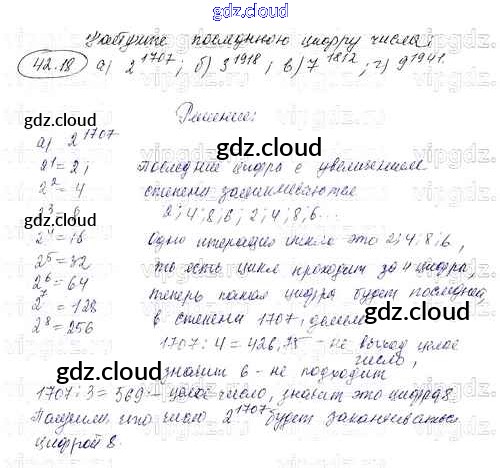 gdz.cloud
Найдите последнюю цифру числа:
42.18 а) 2^1707; б) 3^1918; в) 7^1812; г) 9^1941.
gdz.cloud
Решение:
gdz.cloud
а) 2^1707
2^1 = 2; последние цифры с увеличением
2^2 = 4 степени зацикливаются
2^3 = 8 2; 4; 8; 6; 2; 4; 8; 6...
2^4 = 16 Одно итерация цикла это 2; 4; 8; 6,
2^5 = 32 то есть цикл проходит за 4 цифры,
2^6 = 64 теперь какая цифра будет последней,
2^7 = 128 в степени 1707, делим
2^8 = 256 1707 : 4 = 426,75 - не выход целое
число,
gdz.cloud
значит 6 - не подходит
1707 : 3 = 569 - целое число, значит это цифра 8.
Получим что число 2^1707 будет заканчиваться
цифрой 8.
gdz.cloud